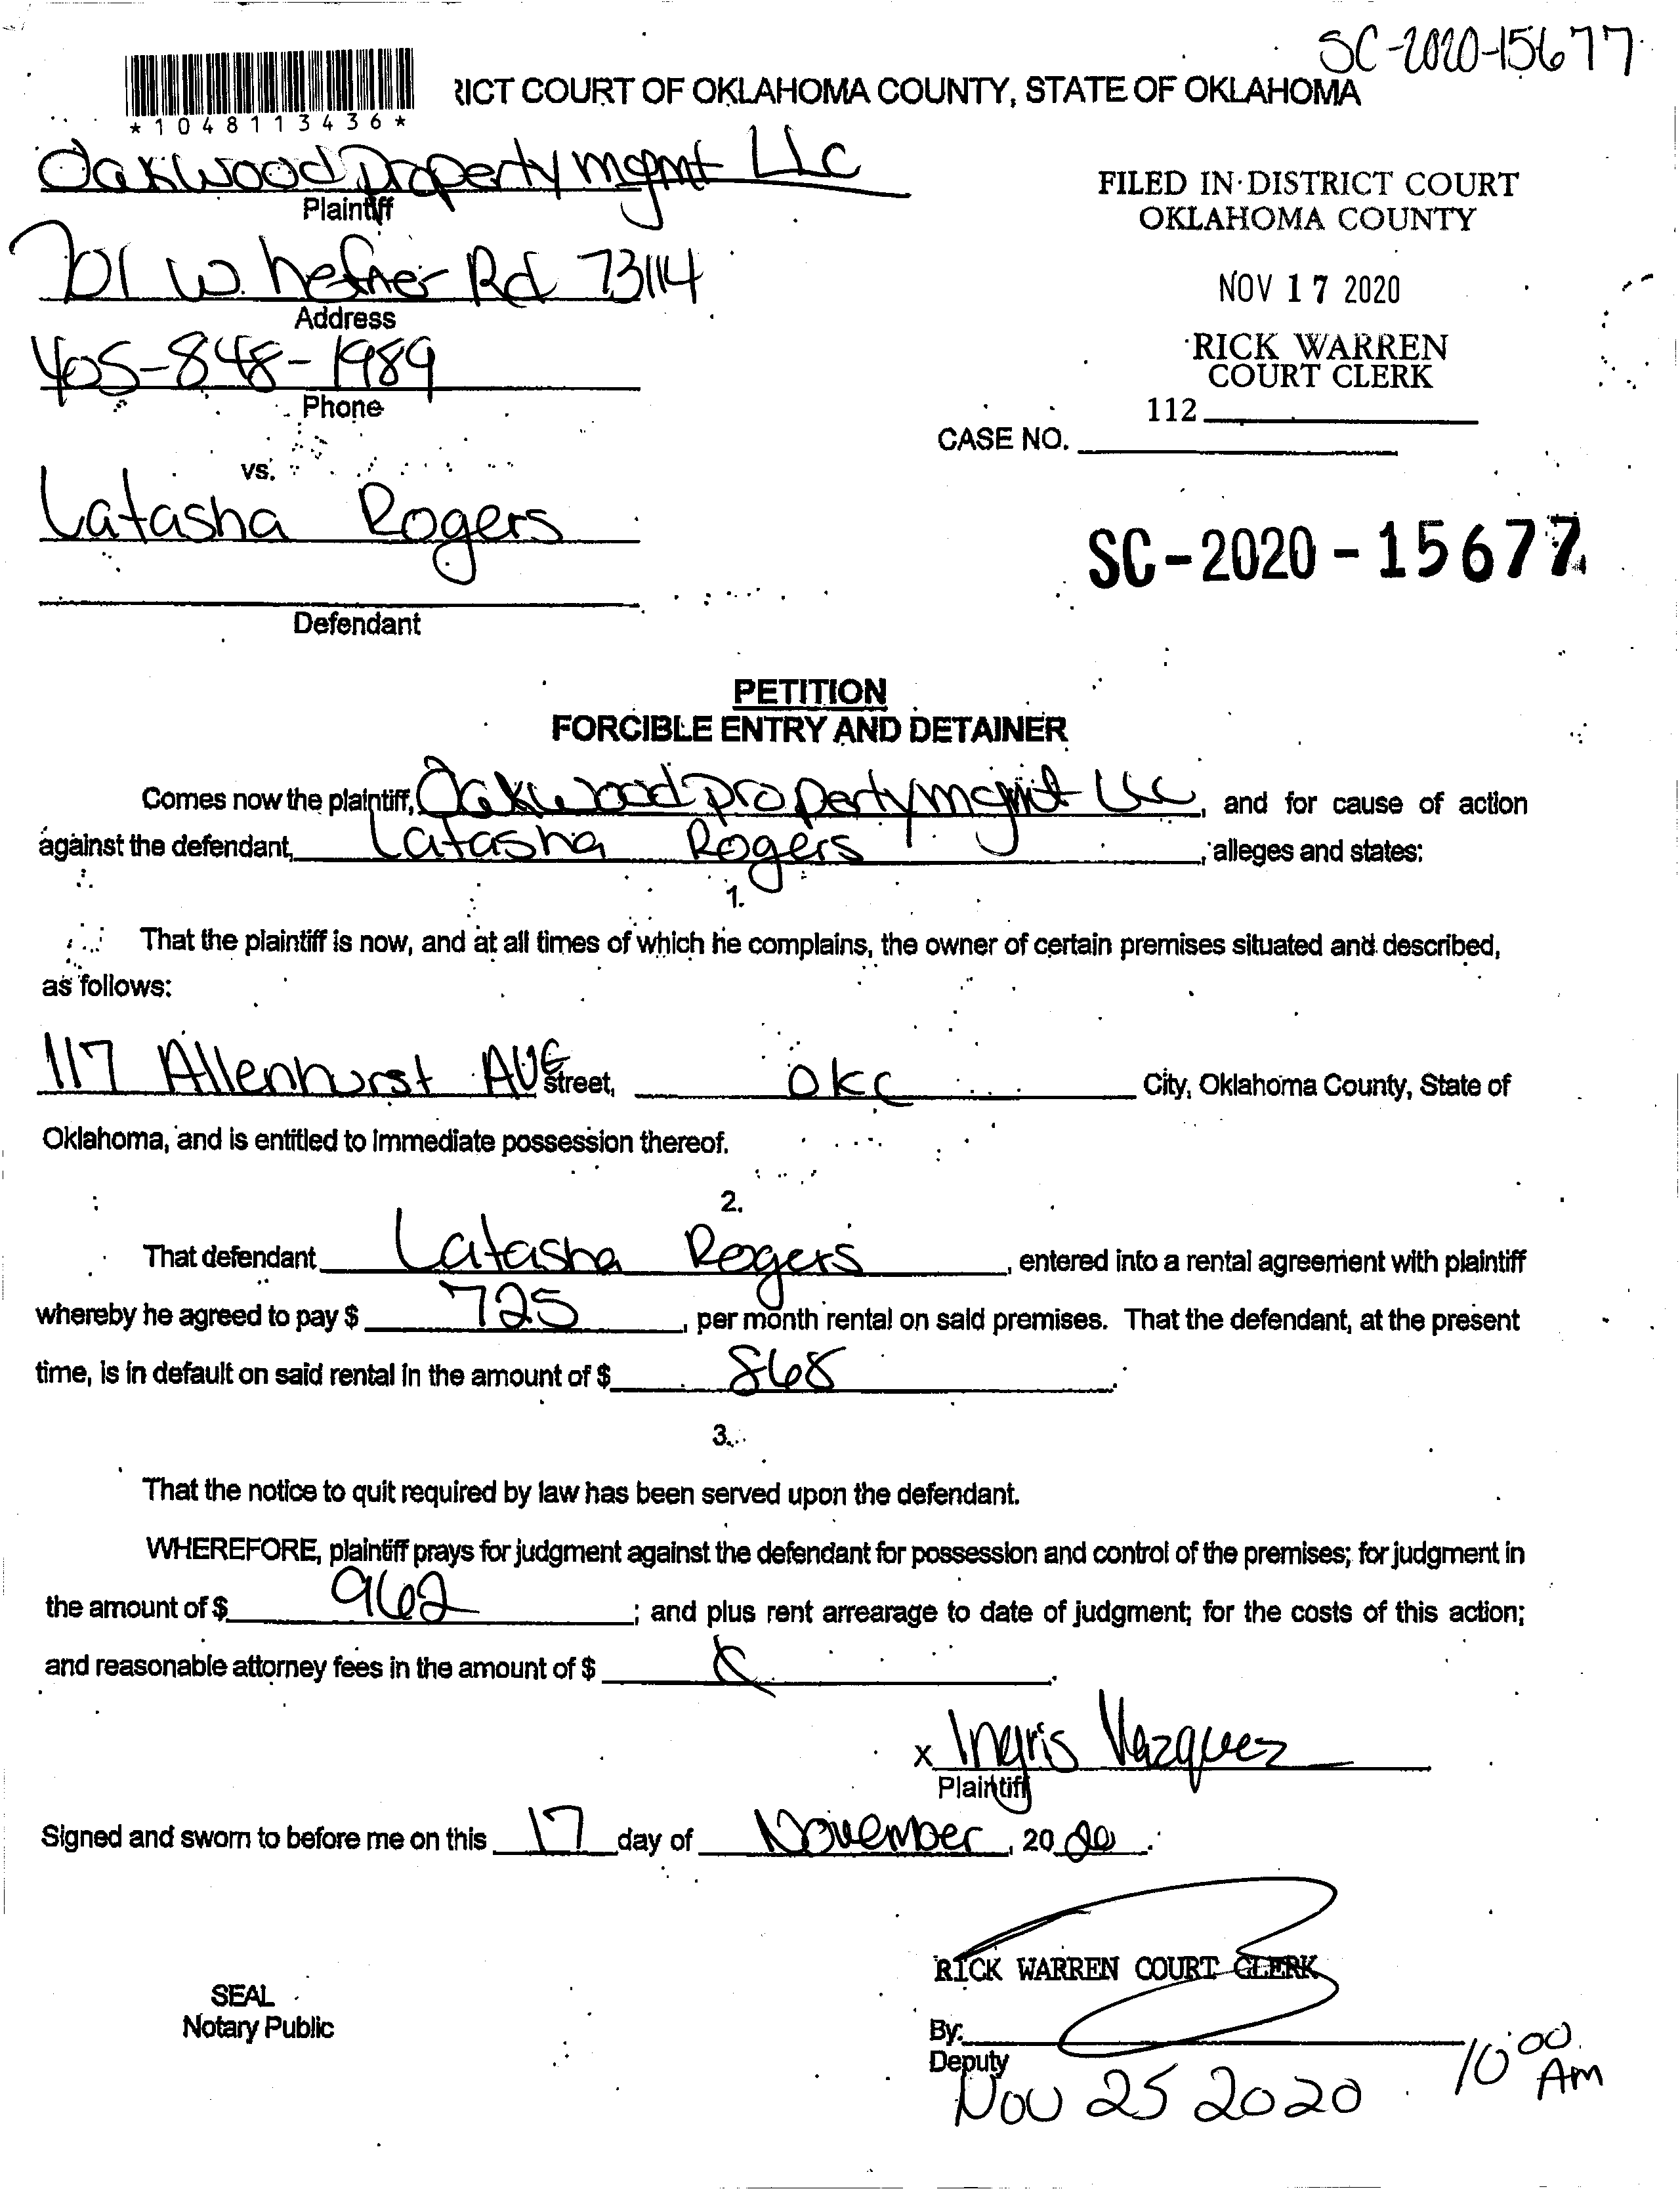 SC-2020-15677
RICT COURT OF OKLAHOMA COUNTY, STATE OF OKLAHOMA
*1048113436*
Oakwood Property mgmt LLC
Plaintiff
FILED IN DISTRICT COURT
OKLAHOMA COUNTY
701 W. hefner Rd 73114
Address
NOV 17 2020
405-848-1989
Phone
RICK WARREN
COURT CLERK
112
CASE NO.
vs.
Latasha Rogers
SC-2020-15677
Defendant
PETITION
FORCIBLE ENTRY AND DETAINER
Comes now the plaintiff, Oakwood property mgmt LLC, and for cause of action
against the defendant, Latasha Rogers, alleges and states:
1.
That the plaintiff is now, and at all times of which he complains, the owner of certain premises situated and described,
as follows:
117 Allenhurst AVE Street, OKC City, Oklahoma County, State of
Oklahoma, and is entitled to immediate possession thereof.
2.
That defendant Latasha Rogers, entered into a rental agreement with plaintiff
whereby he agreed to pay $ 725, per month rental on said premises. That the defendant, at the present
time, is in default on said rental in the amount of $ 868.
3.
That the notice to quit required by law has been served upon the defendant.
WHEREFORE, plaintiff prays for judgment against the defendant for possession and control of the premises; for judgment in
the amount of $ 962; and plus rent arrearage to date of judgment; for the costs of this action;
and reasonable attorney fees in the amount of $
x Ingris Vazquez
Plaintiff
Signed and sworn to before me on this 17 day of November, 2020.
RICK WARREN COURT CLERK
SEAL
Notary Public
By:
Deputy
Nov 25 2020 10:00 Am